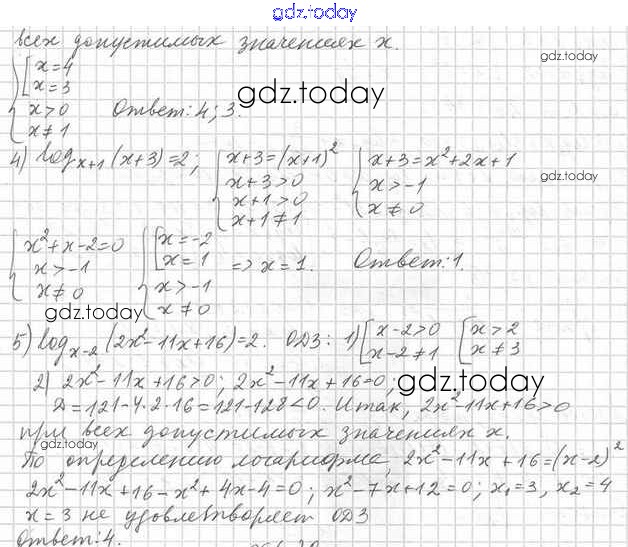 gdz.today
всех допустимых значениях x.
gdz.today
{ [ x=4
x=3
x>0
x≠1
Ответ: 4; 3.
gdz.today
4) log_{x+1}(x+3)=2;
{ x+3=(x+1)²
x+3>0
x+1>0
x+1≠1
{ x+3=x²+2x+1
x>-1
x≠0
gdz.today
{ x²+x-2=0
x>-1
x≠0
{ [ x=-2
x=1
x>-1
x≠0
=> x=1.
Ответ: 1.
gdz.today
5) log_{x-2}(2x²-11x+16)=2. ОДЗ: 1) [ x-2>0
x-2≠1
[ x>2
x≠3
2) 2x²-11x+16>0; 2x²-11x+16=0;
gdz.today
Д=121-4·2·16=121-128<0. Итак, 2x²-11x+16>0
при всех допустимых значениях x.
gdz.today
По определению логарифма, 2x²-11x+16=(x-2)²
2x²-11x+16-x²+4x-4=0; x²-7x+12=0; x₁=3, x₂=4
gdz.today
x=3 не удовлетворяет ОДЗ
Ответ: 4.